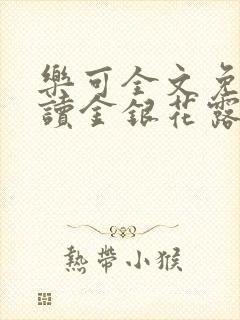 樂可全文免
讀金銀花露
熱帶小猴